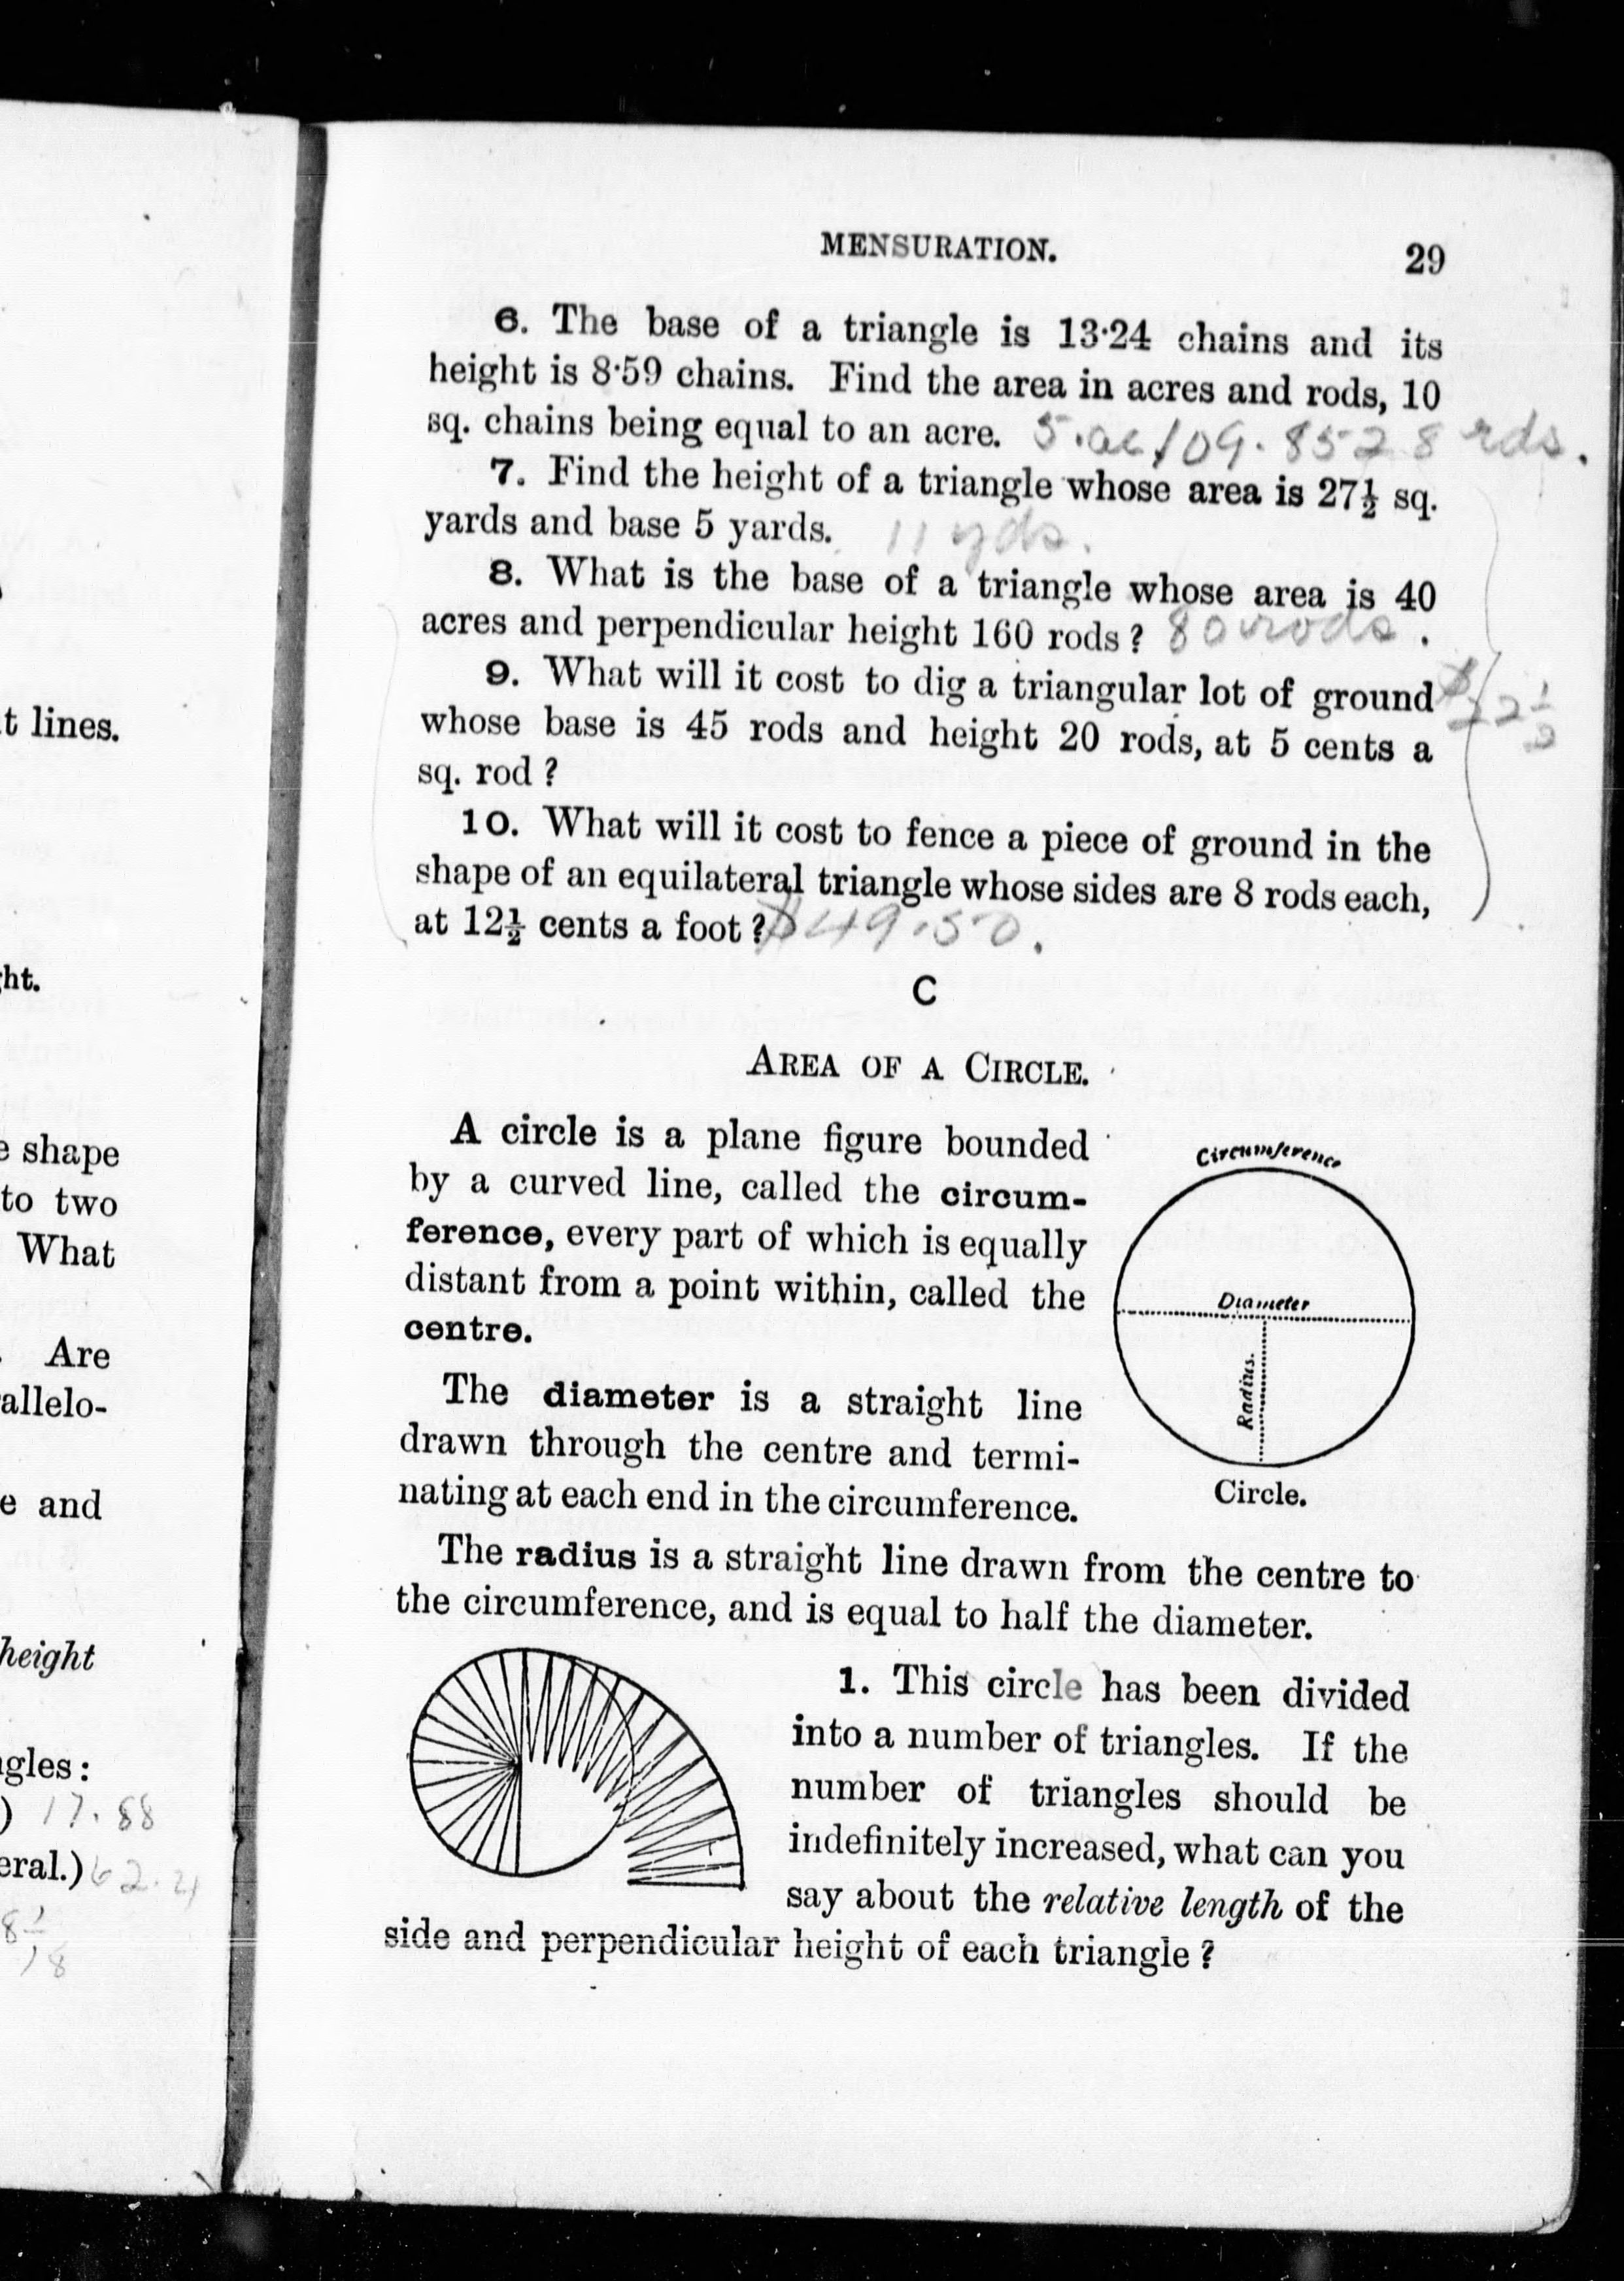 t lines.
ht.
e shape
to two
What
Are
allelo-
e and
height
gles:
) 17.88
eral.) 62.4
MENSURATION.
29
6. The base of a triangle is 13·24 chains and its
height is 8·59 chains. Find the area in acres and rods, 10
sq. chains being equal to an acre. 5.ac 109.8528 rds.
7. Find the height of a triangle whose area is 27½ sq.
yards and base 5 yards. 11 yds.
8. What is the base of a triangle whose area is 40
acres and perpendicular height 160 rods? 80 rods.
9. What will it cost to dig a triangular lot of ground $22½
whose base is 45 rods and height 20 rods, at 5 cents a
sq. rod?
10. What will it cost to fence a piece of ground in the
shape of an equilateral triangle whose sides are 8 rods each,
at 12½ cents a foot? $49.50.
C
AREA OF A CIRCLE.
A circle is a plane figure bounded
by a curved line, called the circum-
ference, every part of which is equally
distant from a point within, called the
centre.
The diameter is a straight line
drawn through the centre and termi-
nating at each end in the circumference.
Circumference
Diameter
Radius.
Circle.
The radius is a straight line drawn from the centre to
the circumference, and is equal to half the diameter.
1. This circle has been divided
into a number of triangles. If the
number of triangles should be
indefinitely increased, what can you
say about the relative length of the
side and perpendicular height of each triangle?